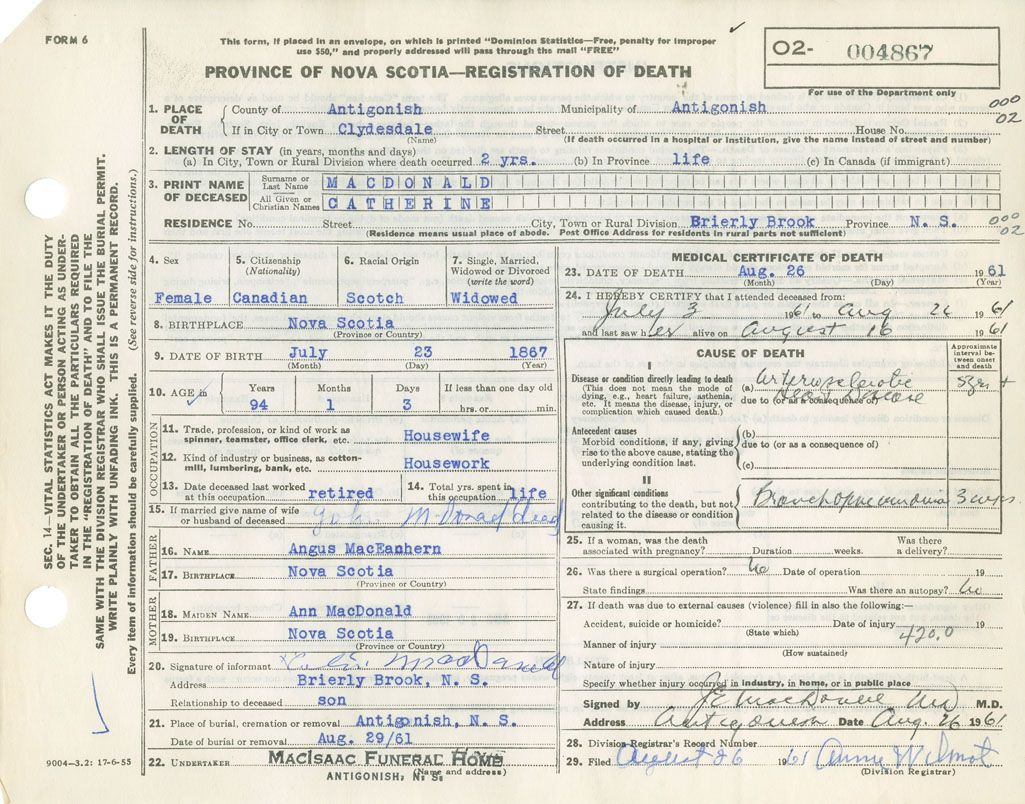 FORM 6
This form, if placed in an envelope, on which is printed "Dominion Statistics—Free, penalty for improper
use $50," and properly addressed will pass through the mail "FREE"
PROVINCE OF NOVA SCOTIA—REGISTRATION OF DEATH
O2- 004867
For use of the Department only
1. PLACE OF DEATH
County of Antigonish Municipality of Antigonish 000
If in City or Town Clydesdale Street House No. 02
(Name) (If death occurred in a hospital or institution, give the name instead of street and number)
2. LENGTH OF STAY (in years, months and days)
(a) In City, Town or Rural Division where death occurred 2 yrs. (b) In Province life (c) In Canada (if immigrant)
3. PRINT NAME OF DECEASED
Surname or Last Name MACDONALD
All Given or Christian Names CATHERINE
RESIDENCE No. Street City, Town or Rural Division Brierly Brook Province N. S. 000 02
(Residence means usual place of abode. Post Office Address for residents in rural parts not sufficient)
4. Sex Female
5. Citizenship (Nationality) Canadian
6. Racial Origin Scotch
7. Single, Married, Widowed or Divorced (write the word) Widowed
8. BIRTHPLACE Nova Scotia
(Province or Country)
9. DATE OF BIRTH July 23 1867
(Month) (Day) (Year)
10. AGE Years 94 Months 1 Days 3 If less than one day old hrs. or min.
OCCUPATION
11. Trade, profession, or kind of work as spinner, teamster, office clerk, etc. Housewife
12. Kind of industry or business, as cotton-mill, lumbering, bank, etc. Housework
13. Date deceased last worked at this occupation retired
14. Total yrs. spent in this occupation life
15. If married give name of wife or husband of deceased John McDonald dead
FATHER
16. NAME Angus MacEanhern
17. BIRTHPLACE Nova Scotia
(Province or Country)
MOTHER
18. MAIDEN NAME Ann MacDonald
19. BIRTHPLACE Nova Scotia
(Province or Country)
20. Signature of informant MacDonald
Address Brierly Brook, N. S.
Relationship to deceased son
21. Place of burial, cremation or removal Antigonish, N. S.
Date of burial or removal Aug. 29/61
22. UNDERTAKER MACISAAC FUNERAL HOME
ANTIGONISH, N. S. (Name and address)
MEDICAL CERTIFICATE OF DEATH
23. DATE OF DEATH Aug. 26 1961
(Month) (Day) (Year)
24. I HEREBY CERTIFY that I attended deceased from:
July 3 1961 to Aug 26 1961
and last saw her alive on August 16 1961
CAUSE OF DEATH
Approximate interval between onset and death
I
Disease or condition directly leading to death
(This does not mean the mode of dying, e.g., heart failure, asthenia, etc. It means the disease, injury, or complication which caused death.)
(a) Arteriosclerotic Heart Disease 5 yrs +
due to (or as a consequence of)
Antecedent causes
Morbid conditions, if any, giving rise to the above cause, stating the underlying condition last.
(b)
due to (or as a consequence of)
(c)
II
Other significant conditions
contributing to the death, but not related to the disease or condition causing it.
Bronchopneumonia 3
25. If a woman, was the death associated with pregnancy? Duration weeks. Was there a delivery?
26. Was there a surgical operation? No Date of operation 19
State findings Was there an autopsy? No
27. If death was due to external causes (violence) fill in also the following:—
Accident, suicide or homicide? Date of injury 19
(State which) 420.0
Manner of injury
(How sustained)
Nature of injury
Specify whether injury occurred in industry, in home, or in public place
Signed by J E MacDonell MD M.D.
Address Antigonish Date Aug. 26 1961
28. Division Registrar's Record Number
29. Filed August 26 1961 Annie Wilmot
(Division Registrar)
SEC. 14—VITAL STATISTICS ACT MAKES IT THE DUTY
OF THE UNDERTAKER OR PERSON ACTING AS UNDER-
TAKER TO OBTAIN ALL THE PARTICULARS REQUIRED
IN THE "REGISTRATION OF DEATH" AND TO FILE THE
SAME WITH THE DIVISION REGISTRAR WHO SHALL ISSUE THE BURIAL PERMIT.
WRITE PLAINLY WITH UNFADING INK. THIS IS A PERMANENT RECORD.
Every item of information should be carefully supplied. (See reverse side for instructions.)
9004—3.2: 17-6-55